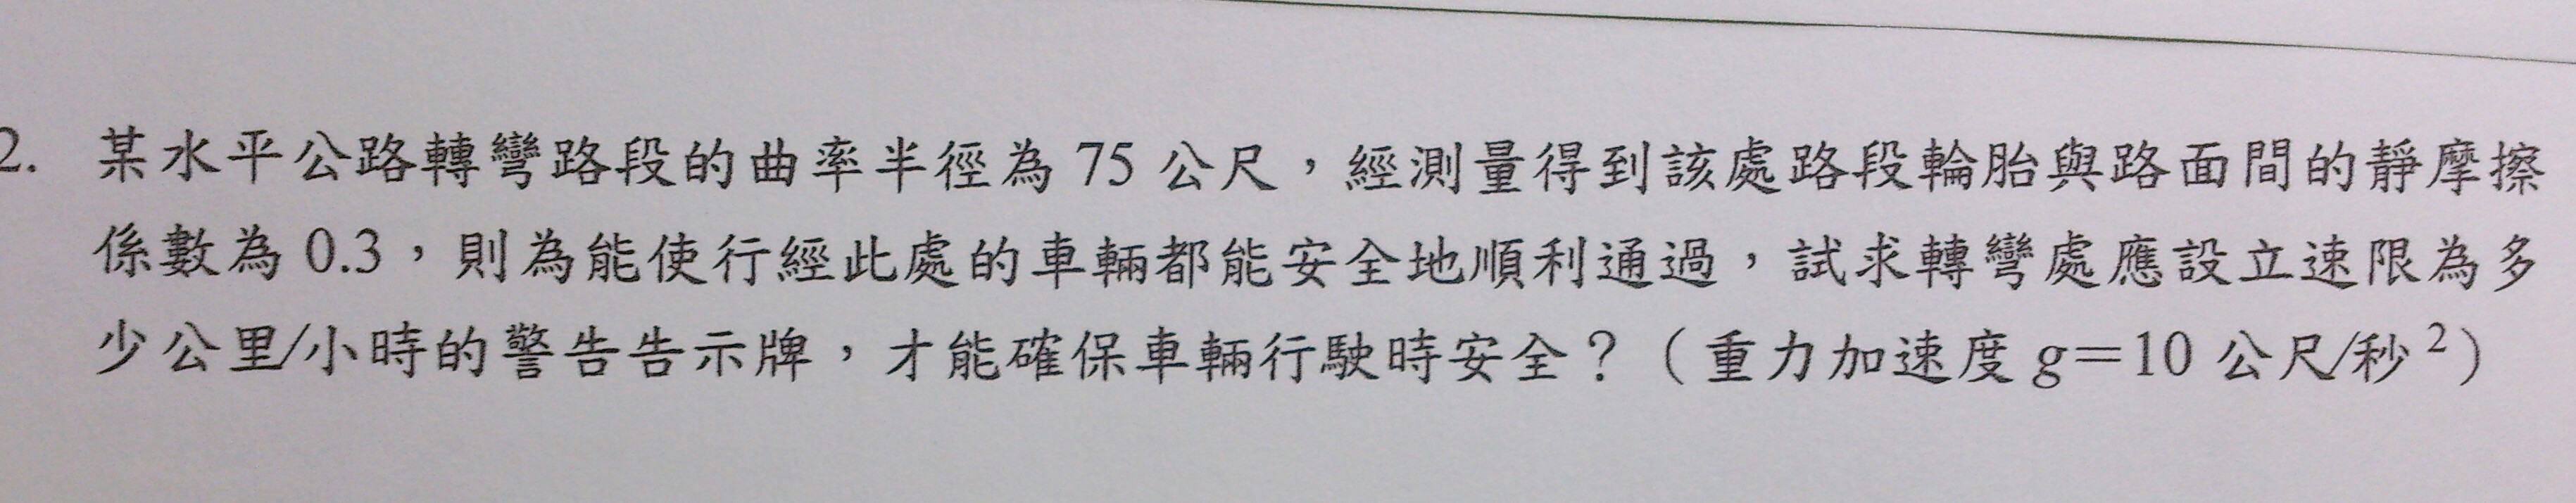 2. 某水平公路轉彎路段的曲率半徑為 75 公尺，經測量得到該處路段輪胎與路面間的靜摩擦
係數為 0.3，則為能使行經此處的車輛都能安全地順利通過，試求轉彎處應設立速限為多
少公里/小時的警告告示牌，才能確保車輛行駛時安全？（重力加速度 g＝10 公尺/秒²）